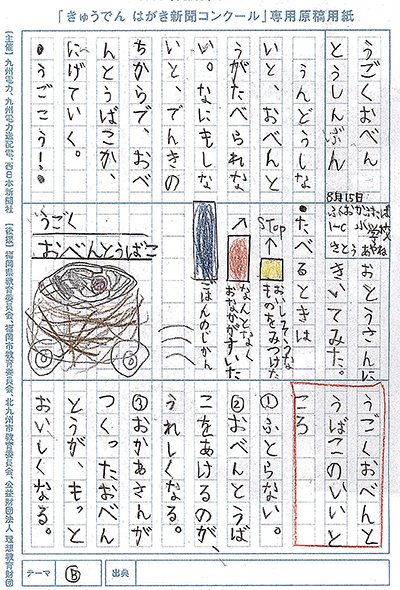 「きゅうでん はがき新聞コンクール」専用原稿用紙
うごくおべん
とうしんぶん
うんどうしな
いと、おべんと
うがたべられな
い。なにもしな
いと、でんきの
ちからで、おべ
んとうばこが、
にげていく。
●うごこう！●
8月15日
ふくおかふたば
小学校
1-C
さとう
おとうさんに
きいてみた。
・たべるときは
Stop
↑
おいしそうな
ものをみつけた
↗
なんとなく
おなかがすいた
ごはんのじかん
うごく
おべんとうばこ
うごくおべんと
うばこのいいと
ころ
①ふとらない。
②おべんとうば
こをあけるのが、
うれしくなる。
③おかあさんが
つくったおべん
とうが、もっと
おいしくなる。
【主催】九州電力、九州電力送配電、西日本新聞社 【後援】福岡県教育委員会、福岡市教育委員会、北九州市教育委員会、公益財団法人 理想教育財団
テーマ Ⓑ 出典